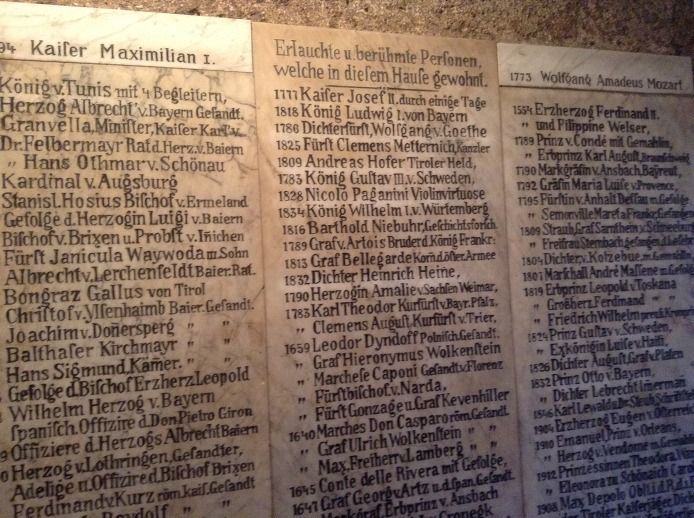 94 Kaiſer Maximilian I.
König v. Tunis mit 4 Begleitern,
Herzog Albrecht v. Bayern Geſandt.
Granvella, Miniſter, Kaiſer Karl v.
Dr. Felbermayr Rat d. Herz. v. Baiern
" Hans Othmar v. Schönau
Kardinal v. Augsburg
Stanisl. Hosius Biſchof v. Ermeland
Gefolge d. Herzogin Luigi v. Baiern
Biſchof v. Brixen u. Probſt v. Inichen
Fürſt Janicula Waywoda m. Sohn
Albrecht v. Lerchenfeldt Baier. Rat.
Bongraz Gallus von Tirol
Chriſtof v. Ylſenhaimb Baier. Geſandt.
Joachim v. Donersperg " "
Balthaſer Kirchmayr " "
Hans Sigmund, Kämer. " "
Gefolge d. Biſchof Erzherz. Leopold
Wilhelm Herzog v. Bayern
ſpaniſch. Offizire d. Don Pietro Giron
Offiziere d. Herzogs Albrecht Baiern
Herzog v. Lothringen, Geſandter,
Adelige u. Offizire d. Biſchof Brixen
Ferdinand v. Kurz röm. kaiſ. Geſandt
Erlauchte u. berühmte Perſonen,
welche in dieſem Hauſe gewohnt.
1777 Kaiſer Joſef II. durch einige Tage
1818 König Ludwig I. von Bayern
1786 Dichterfürſt, Wolfgang v. Goethe
1825 Fürſt Clemens Metternich, Kanzler
1809 Andreas Hofer Tiroler Held,
1783 König Guſtav III. v. Schweden,
1828 Nicolo Paganini Violinvirtuose
1834 König Wilhelm I. v. Würtemberg
1816 Barthold Niebuhr, Geſchichtsforſch.
1789 Graf v. Artois Bruder d. König Frankr.
1813 Graf Bellegarde Kom. d. öſter. Armee
1832 Dichter Heinrich Heine,
1790 Herzogin Amalie v. Sachſen Weimar,
1783 Karl Theodor Kurfürſt v. Bayr. Pfalz,
" Clemens Auguſt, Kurfürſt v. Trier,
1659 Leodor Dyndoff Polniſch. Geſandt.
" Graf Hieronymus Wolkenſtein
" Marcheſe Caponi Geſandt v. Florenz
" Fürſtbiſchof v. Narda,
" Fürſt Gonzage u. Graf Kevenhiller
1640 Marches Don Casparo röm. Geſandt.
" Graf Ulrich Wolkenſtein " "
" Max. Freiherr v. Lamberg " "
1645 Conte delle Rivera mit Gefolge,
1647 Graf Georg v. Artz u. d. ſpan. Geſandt.
Markgraf. Erbprinz v. Ansbach
1773 Wolfgang Amadeus Mozart
1554 Erzherzog Ferdinand II.
" und Filippine Welser,
1789 Prinz v. Condé mit Gemahlin,
" Erbprinz Karl Auguſt, Braunſchweig
1790 Markgräfin v. Ansbach, Bayreut,
1792 Gräfin Maria Luiſe v. Provence,
1795 Fürſtin v. Anhalt Deſſau m. Gefolge
" Semonville
1809 Straub, Graf Sarntheim v. Schneeburg
" Freifrau Sternbach, gefangen d.
1804 Dichter v. Kotzebue m. Gemahlin
1801 Marſchall André Maſſene m. Gefolge
1819 Erbprinz Leopold v. Toskana
" Großherz. Ferdinand " "
" Friedrich Wilhelm preuß.
1824 Prinz Guſtav v. Schweden,
" Exkönigin Luiſe v. Haiti,
1826 Dichter Auguſt, Graf v. Platen
1832 Prinz Otto v. Bayern,
" Dichter Lebrecht Immerman
1846 Karl Lewald u. Dr. Steub,
1904 Erzherzog Eugen v. Öſterreich
1910 Emanuel, Prinz v. Orleans,
" Herzog v. Vendome m. Gemahlin
1912 Prinzeſſinnen Theodora,
" Eleonora zu Schönaich
1908 Max Depolo